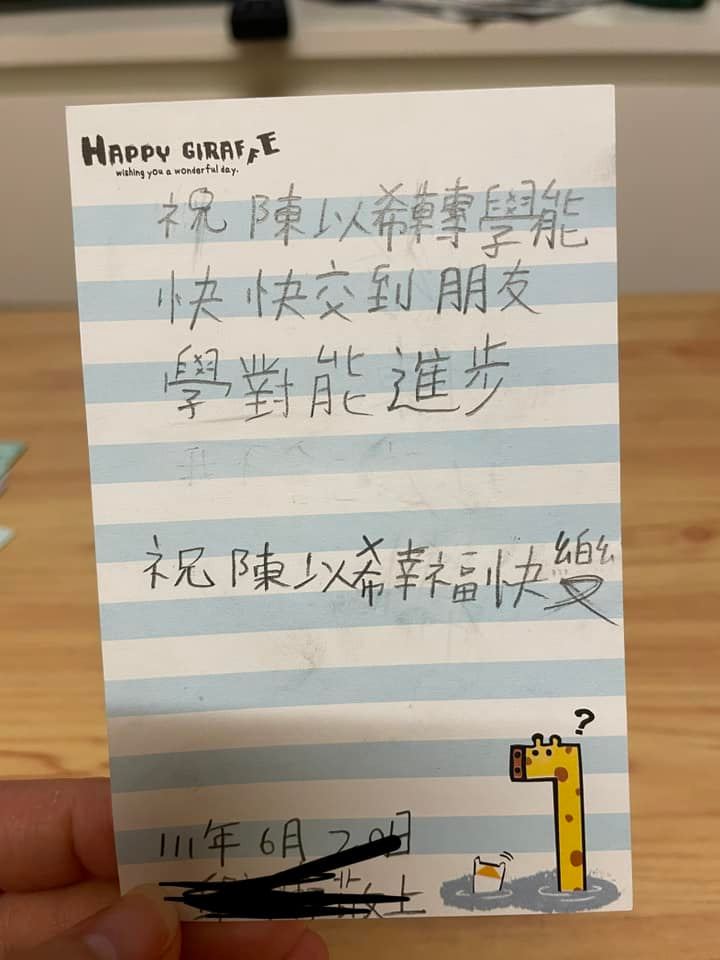 HAPPY GIRAFFE
wishing you a wonderful day.
祝陳以希轉學能
快快交到朋友
學對能進步
祝陳以希幸福快變
?
111年6月20日